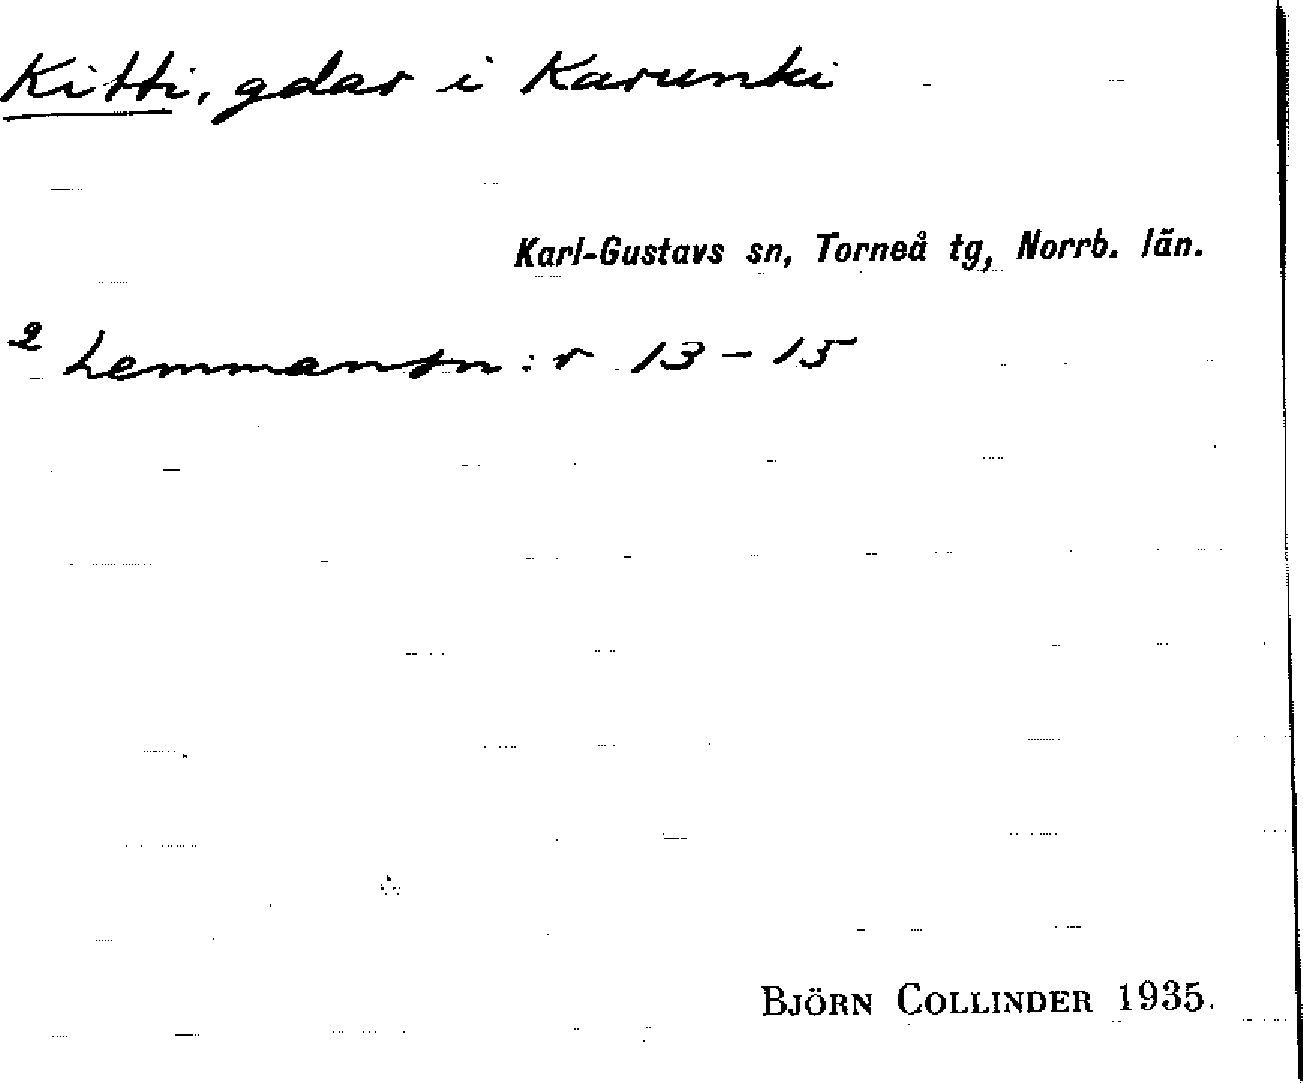 Kitti, gdar i Karunki
Karl-Gustavs sn, Torneå tg, Norrb. län.
2 Lemmansn:r 13-15
BJÖRN COLLINDER 1935.